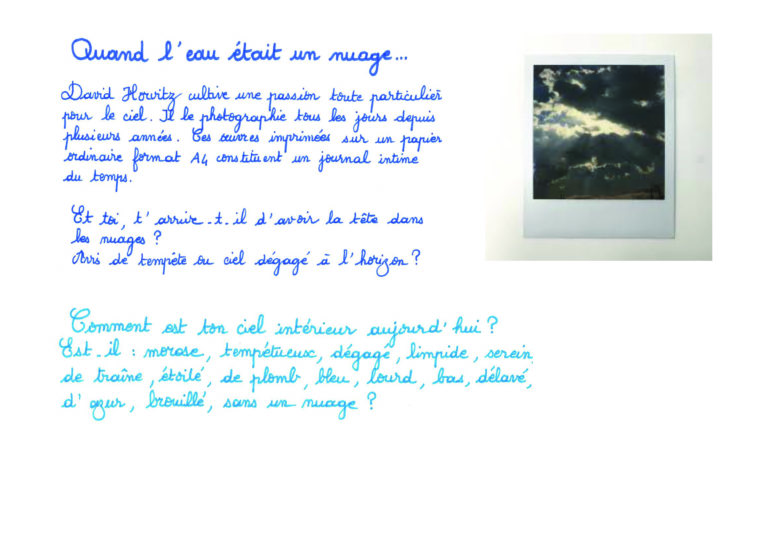 Quand l'eau était un nuage...
David Horvitz cultive une passion toute particulier
pour le ciel. Il le photographie tous les jours depuis
plusieurs années. Ces œuvres imprimées sur un papier
ordinaire format A4 constituent un journal intime
du temps.
Et toi, t'arrive-t-il d'avoir la tête dans
les nuages ?
Avis de tempête ou ciel dégagé à l'horizon ?
Comment est ton ciel intérieur aujourd'hui ?
Est-il : morose, tempétueux, dégagé, limpide, serein,
de traîne, étoilé, de plomb, bleu, lourd, bas, délavé,
d'azur, brouillé, sans un nuage ?